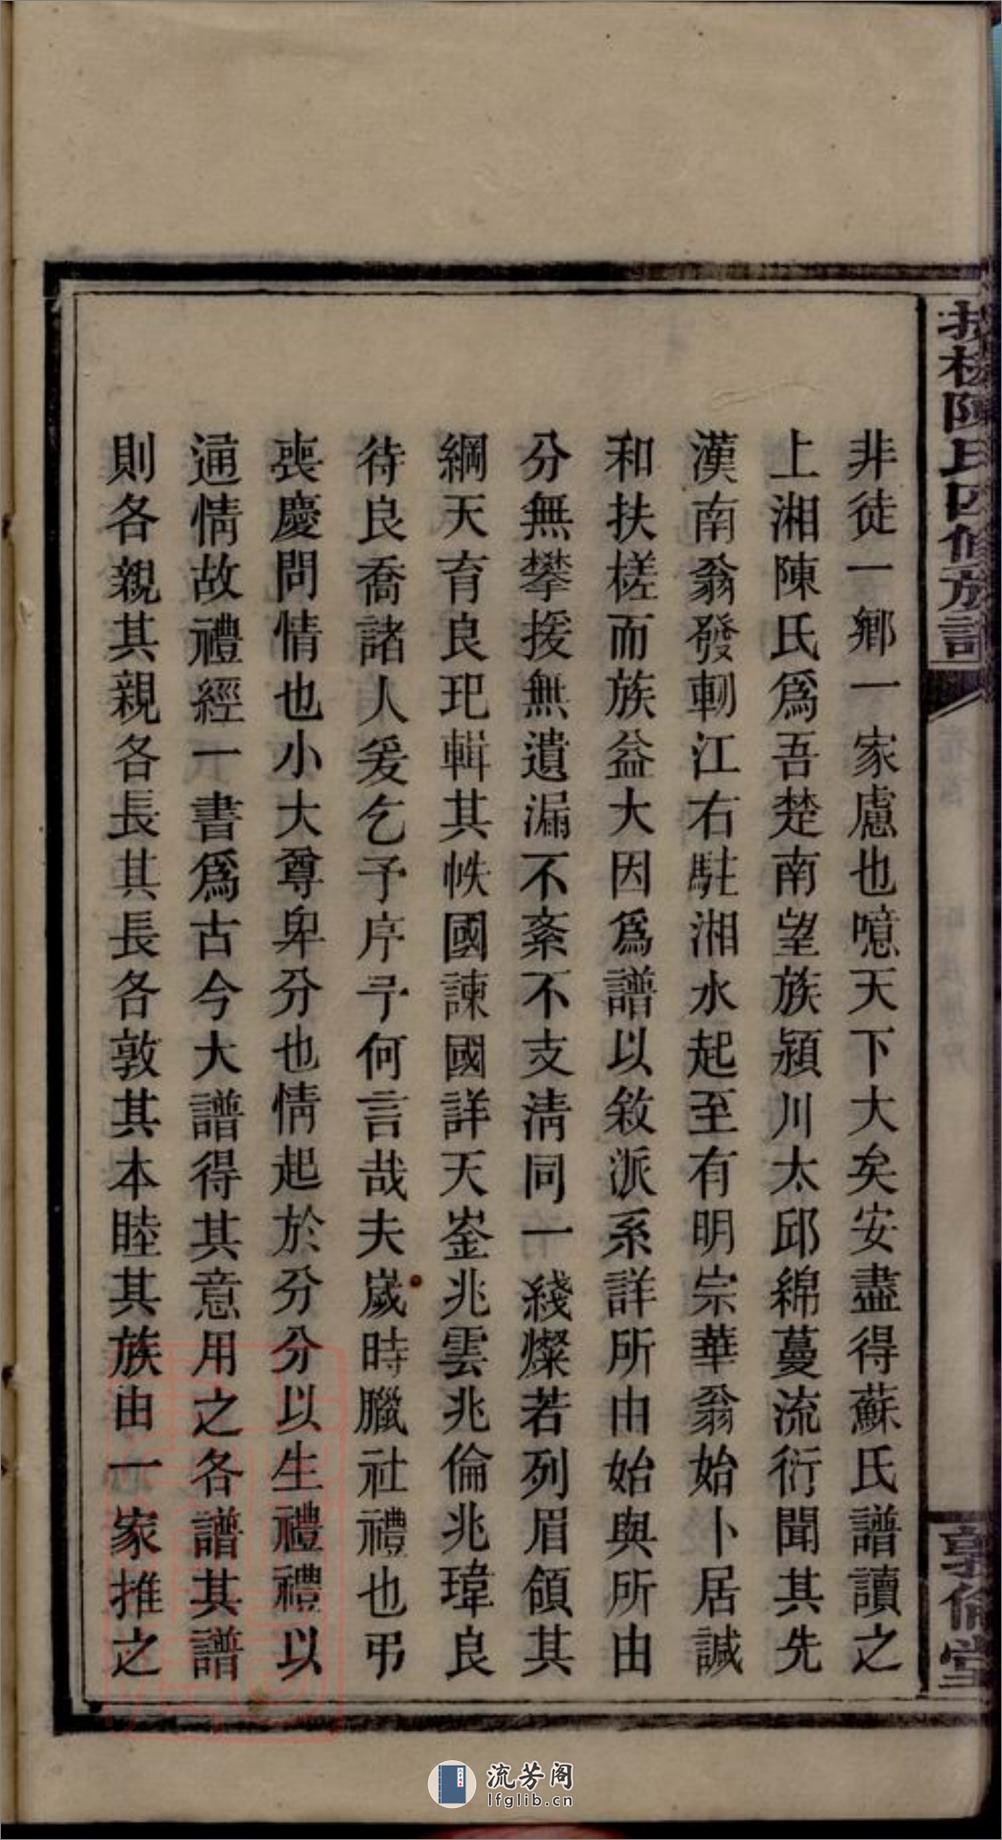 扶槎陳氏四修族譜
敦倫堂
非徒一鄉一家慮也噫天下大矣安盡得蘇氏譜讀之
上湘陳氏爲吾楚南望族潁川太邱綿蔓流衍聞其先
漢南翁發軔江右駐湘水起至有明宗華翁始卜居諴
和扶槎而族益大因爲譜以敘派系詳所由始與所由
分無攀援無遺漏不紊不支清同一綫燦若列眉領其
綱天育良玘輯其帙國諫國詳天崟兆雲兆倫兆瑋良
待良喬諸人爰乞予序予何言哉夫歲時臘社禮也弔
喪慶問情也小大尊卑分也情起於分分以生禮禮以
通情故禮經一書爲古今大譜得其意用之各譜其譜
則各親其親各長其長各敦其本睦其族由一家推之
流芳阁
lfglib.cn